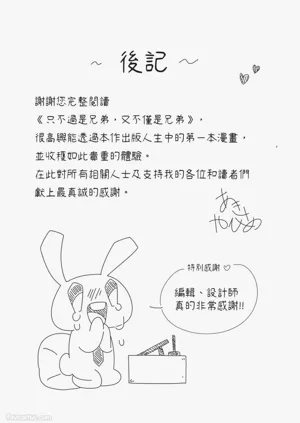 ~ 後記 ~
謝謝您完整閱讀
《只不過是兄弟，又不僅是兄弟》，
很高興能透過本作出版人生中的第一本漫畫，
並收穫如此貴重的體驗。
在此對所有相關人士及支持我的各位和讀者們
獻上最真誠的感謝。
特別感謝♡
編輯、設計師
真的非常感謝!!